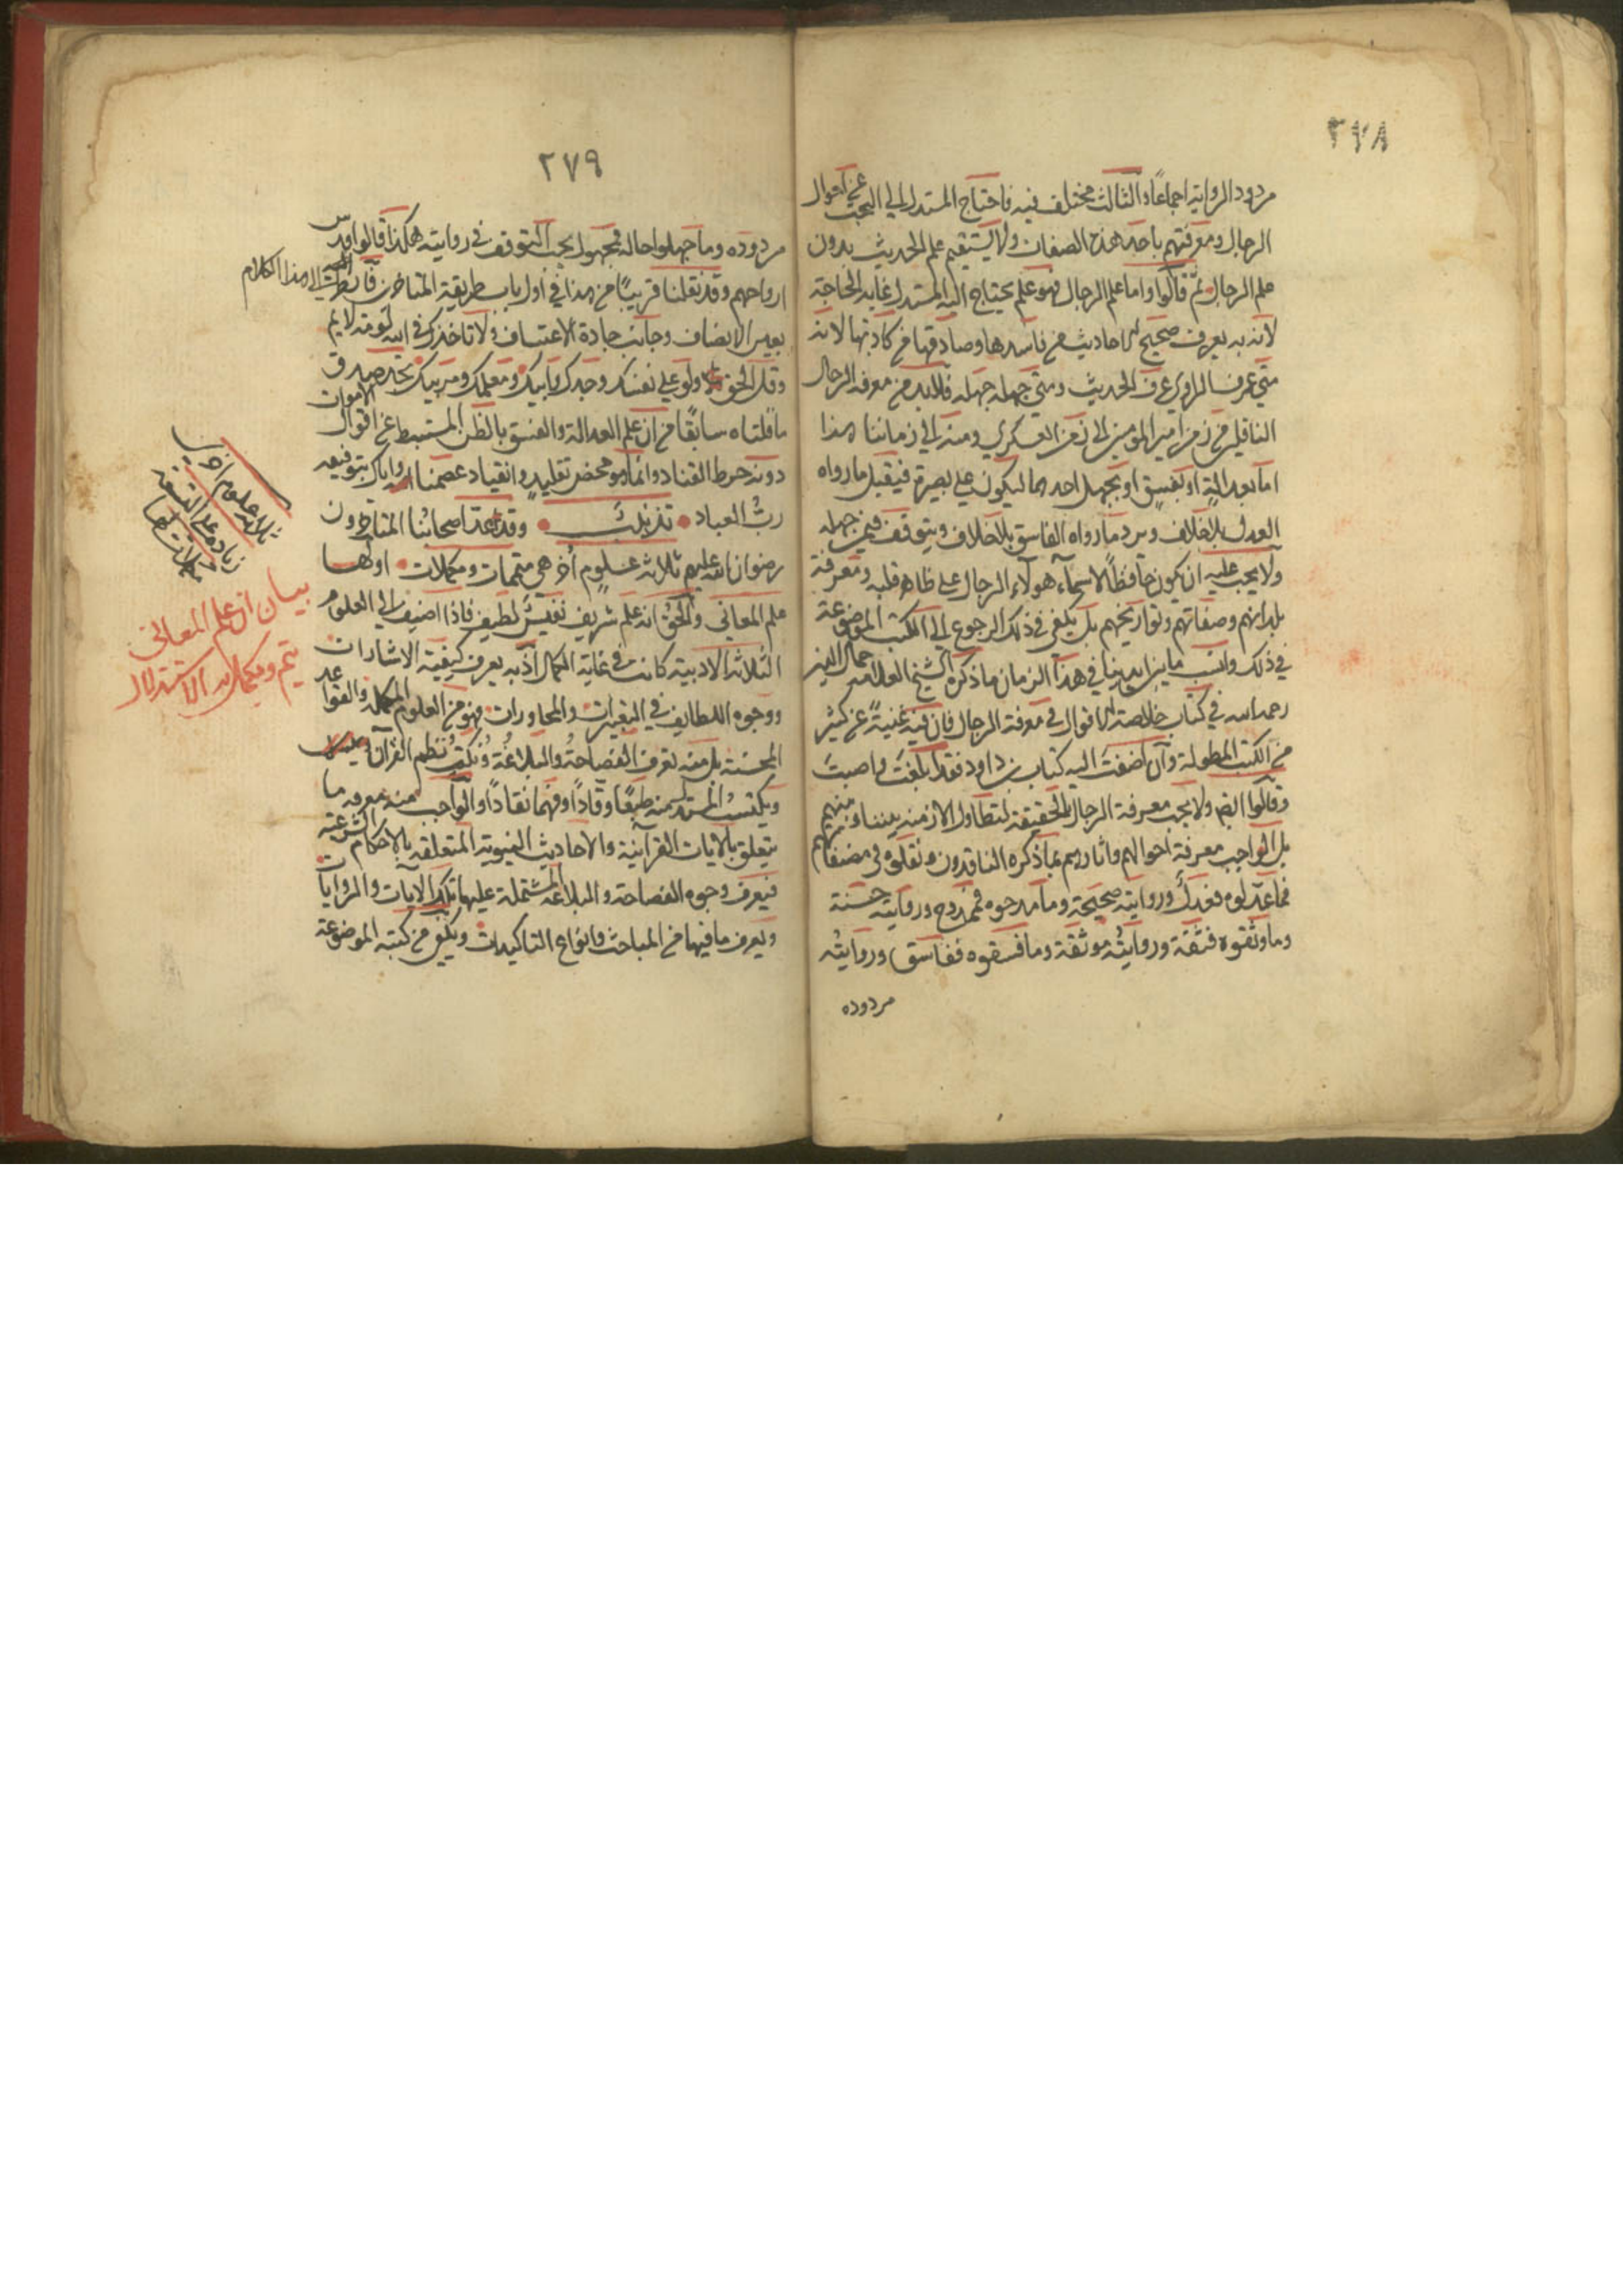 ٢٧٨
مردود الرواية اجماعًا والثالث مختلف فيه فاحتاج المستدل الى البحث عن احوال
الرجال ومعرفتهم باحد هذه الصفات ولا يستقيم علم الحديث بدون
علم الرجال ثم قالوا واما علم الرجال فهو علم يحتاج اليه المستدل غاية الحاجة
لانه به يعرف صحيح الاحاديث من فاسدها وصادقها من كاذبها لانه
متى عرف الراوي عرف الحديث ومتى جهله جهله فلابد من معرفة الرجال
الناقلين من زمن امير المومنين الى زمن العسكري ومنه الى زماننا هذا
اما بعدالة او بفسق او بجهل احدهما ليكون على بصيرة فيقبل ما رواه
العدل بلا خلاف ويرد ما رواه الفاسق بلا خلاف ويتوقف فيمن جهله
ولا يجب عليه ان يكون حافظًا لاسماء هولاء الرجال على ظاهر قلبه ومعرفة
بلدانهم وصفاتهم وتواريخهم بل يكفي في ذلك الرجوع الى الكتب الموضوعة
في ذلك وانسب ما بين ايدينا في هذا الزمان ما ذكره الشيخ العلامه جمال الدين
رحمه الله في كتاب خلاصة الاقوال في معرفة الرجال فان فيه غنيةً عن كثير
من الكتب المطولة وان اضفت اليه كتاب بن داود فقد ابلغت واصبت
وقالوا ايضا ولا يجب معرفة الرجال بالحقيقة لتطاول الازمنه بيننا وبينهم
بل الواجب معرفة احوالهم واثارهم بما ذكره الناقدون ونقلوه في مصنفاتهم
فما عدلوه فعدلٌ وروايته صحيحة وما مدحوه فممدوح وروايته حسنة
وما وثقوه فثقة وروايتُه موثقة وما فسقوه ففاسق وروايتُه
مردوده
٢٧٩
مردوده وما جهلوا حاله فمجهول يجب التوقف في روايته هكذا قالوا قدس
ارواحهم وقد نقلنا قريبًا من هذا في اول باب طريقة المتاخرين فانظر الى هذا الكلام
بعين الانصاف وجانب جادة الاعتساف ولا تاخذك في الله لومة لايم
وقل الحق ولو على نفسك وجدك وابيك ومعلمك ومربيك تجد صدق
ما قلناه سابقًا من ان علم العدالة والفسق بالظن المستنبط من اقوال الاموات
دونه خرط القتاد وانما هو محض تقليد وانقياد عصمنا الله واياك بتوفيقه
ربُّ العباد • تذييل • وقد عدّ اصحابُنا المتاخرون
رضوان الله عليهم ثلاثة علوم أُخر هي متممات ومكملات • اولها
علم المعاني والحق انه علم شريف نفيسٌ لطيف فاذا اضيف الى العلوم
الثلاثة الادبيه كانت في غاية الكمال اذ به يعرف كيفية الاشارات
ووجوه اللطايف في التعبيرات والمحاورات فهو من العلوم المكملة والقواعد
المحسنة بل منه تعرف الفصاحةُ والبلاغةُ ونكتُ نظم القرآن
ويكتسبُ المستدل منه طبعًا وقّادًا وفهما نقادًا والواجب منه معرفة ما
يتعلق بالايات القرآنية والاحاديث النبوية المتعلقه بالاحكام الشرعية
فيعرف وجوه الفصاحة والبلاغة المشتملة عليها تلك الايات والروايات
ويعرف ما فيها من المباحث وانواع التاكيدات ويكفي من كتبه الموضوعة
ثلاثة علوم اخرى
زياده على التسعة
مكملات لها
بيان ان علم المعاني
متمم ومكمل الاستدلال